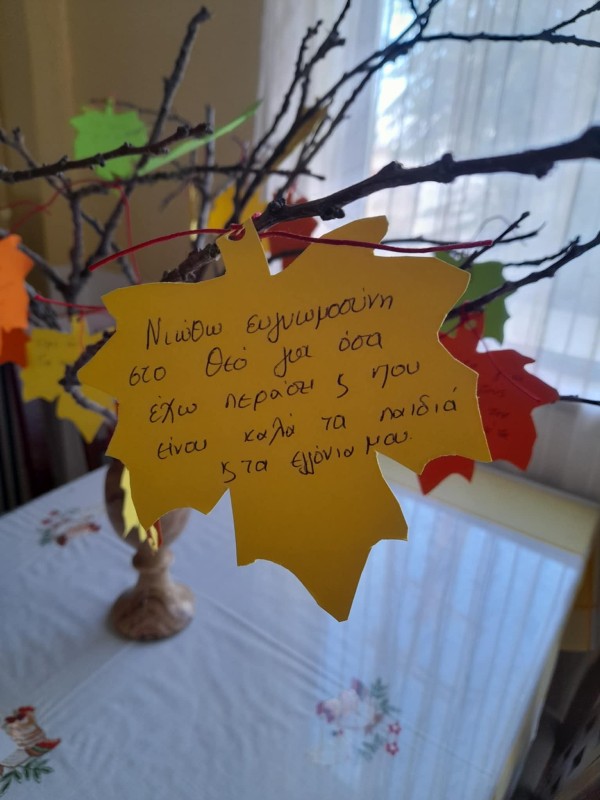 Νιώθω ευγνωμοσύνη
στο Θεό για όσα
έχω περάσει ς που
είναι καλά τα παιδιά
ς τα εγγόνια μου.